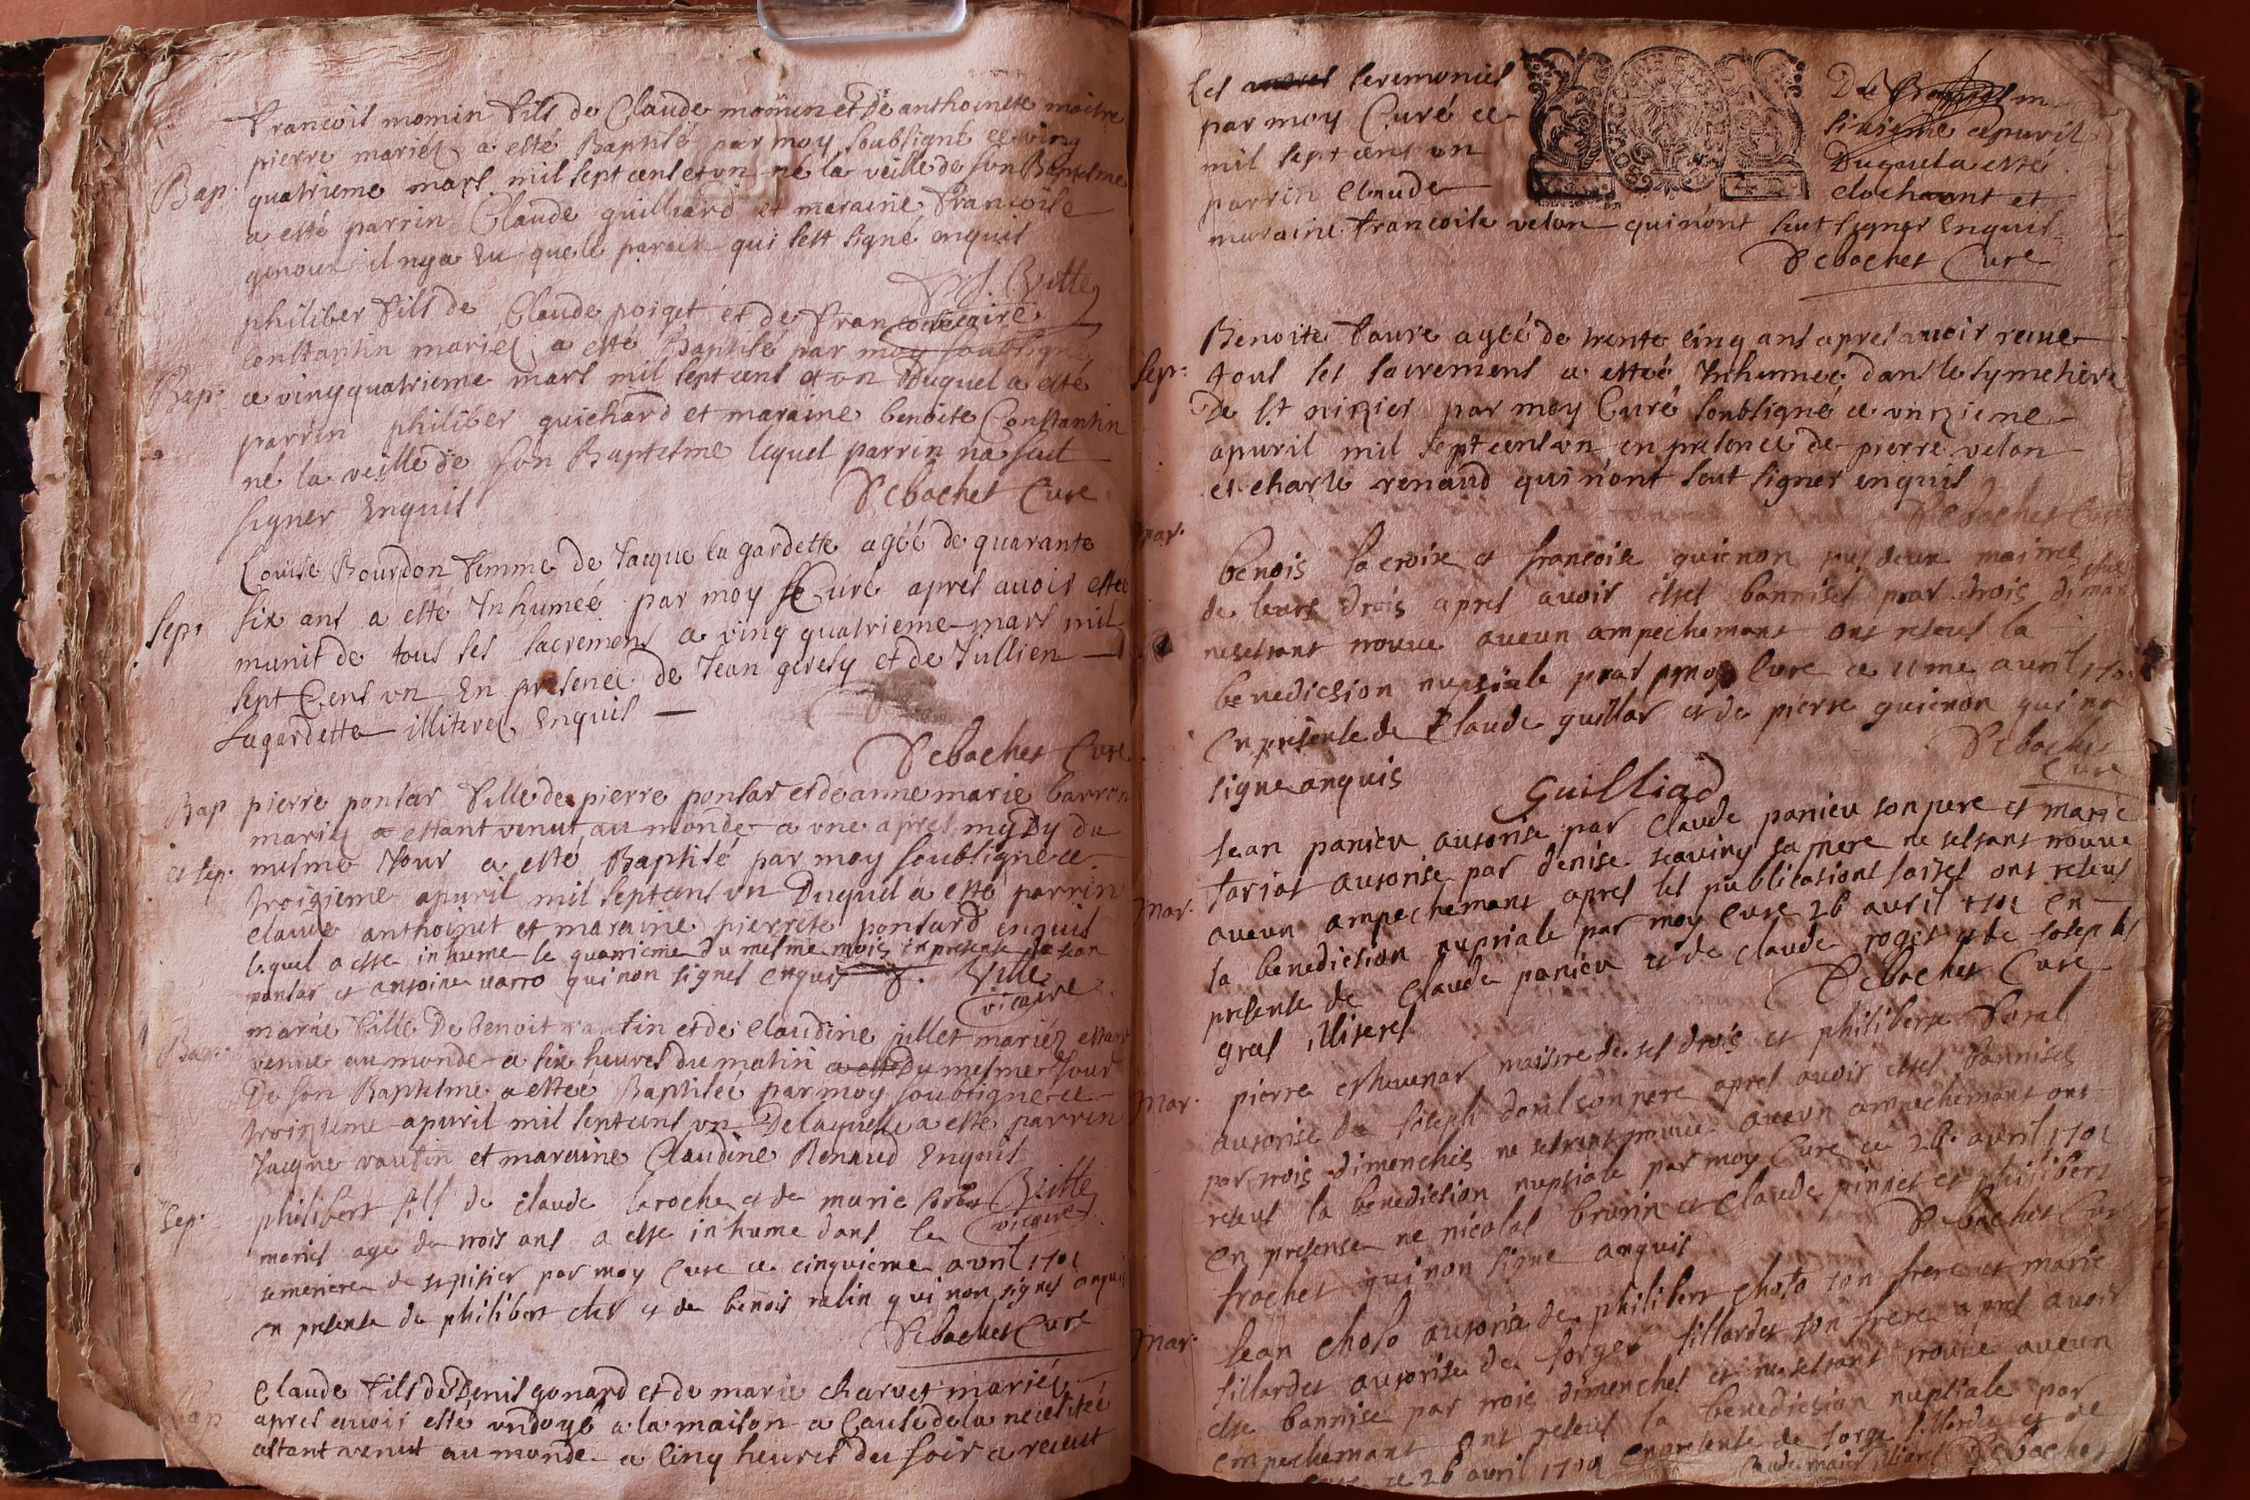 francois momin fils de Claude momin et de anthoinete maitre
pierre mariez a esté Baptisé par moy soubsigné ce ving
Bap. quatrieme mars mil sept cens et un né la veille de son Baptesme
a esté parrin Claude guilliard et maraine francoise
genoux il nya eu que le parrin qui sest signé enquis
Vitte
vicaire
philiber fils de Claude poiget et de fran
Constantin mariez a esté Baptisé par moy soubsigné
Bap. ce vingquatrieme mars mil sept cens et un Duquel a esté
parrin philiber guichard et maraine benoite Constantin
né la veille de son Baptesme lequel parrin na sceut
signer Enquis Debochet Curé
Louise Bourdon femme de Jacque lagardette agéé de quarante
Sep. six ans a esté Inhumeé par moy Curé apres avoir estee
munit de tous ses sacremens ce ving quatrieme mars mil
sept Cens un En presence de Jean geresy et de Jullien
Lagardette illiterez Enquis
Debochet Curé
Bap pierre ponsar fille de pierre ponsar et de anne marie barron
mariez estant venut au monde a une apres mydy du
et sep. mesme Jour a esté Baptisé par moy soubsigné ce
troizieme apuril mil septcens un Duquel a esté parrin
claude anthoinet et maraine pierrete ponsard enquis
lequel a este inhume le quatrieme du mesme mois en presense de Jean
ponsar et antoine varro qui non signes enquis Vitte
vicaire
marie fille De benoit vautin et de claudine jullet mariez estant
Bap. venue au monde a six heures du matin du mesme Jour
De son Baptesme a estee Baptisée par moy soubsigné ce
troizieme apuril mil septcens un De laquelle a esté parrin
Jacque vautin et maraine Claudine Renaud Enquis
Vitte
vicaire
Sep. philibert fils de claude laroche et de marie
maries age de trois ans a este inhume dans le
semetiere de st nisier par moy Cure ce cinquieme avril 1701
en presense de philibert cler et de benois ralin qui non signes enquis
Debochet Cure
Claude fils de Denis gonard et de marie charvet mariez
Bap apres avoir esté undoyé a la maison a Cause de la necessitéé
estant venut au monde a cinq heures du soir a receut
les seremonies De
par moy Curé ce sixieme apuril
mil sept cens un Duquel a esté
parrin Claude clochant et
maraine francoise velon qui nont seut signer Enquis
Debochet Cure
Benoite faure agéé de trente cinq ans apres avoir receue
Sep. tous ses sacremens a estéé Inhumeé dans le symetiere
De St nizier par moy Curé soubsigné ce unzieme
apuril mil sept cens un en presence de pierre velon
et charle renaud qui nont seut signer enquis
Debochet Cure
Mar. benois lacroix et francoise guienon
de leurs drois apres avoir estes bannises par trois
nesetant trouve aucun ampechemant ont reseus la
benediction nuptiale par moy Cure ce 11me avril 1701
en presense de Claude guillar et de pierre guienon qui na
signe anquis Debochet
Cure
Guilliad
Jean panieu autorise par claude panieu son pere et marie
tariot autorise par denise sa mere ne setant trouve
Mar. aucun ampechemant apres les publications faites ont reseus
la benediction nuptiale par moy Cure 26 avril 1701 en
presense de Claude panieu et de claude roget et de Joseph
gras illiteres Debochet Cure
Mar. pierre estuvenar maistre de ses drois et philiberte
autorise de Joseph son pere apres avoir estes bannises
par trois dimenches ne setant trouve aucun ampechemant ont
reseus la benediction nuptiale par moy Cure ce 26 avril 1701
en presense ne nicolas brurin et Claude pinnet et philibert
trochet qui non signe anquis Debochet Cure
Mar. Jean choso autorise de philibert choso son frere et marie
fillardet autorise de forget fillardet son frere apres avoir
este bannise par trois dimenches et ne setant trouve aucun
empechemant ont reseus la benediction nuptiale par
ce 26 avril 1701 en presense de forget fillardet et de
Debochet